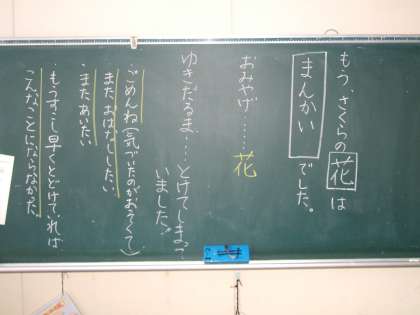 もう、さくらの花は
まんかいでした。
おみやげ……花
ゆきだるま……とけてしまって
いました。
・ごめんね(気づいたのがおそくて)
・またおはなししたい
・またあいたい
・もうすこし早くとどけていれば
こんなことにならなかった。